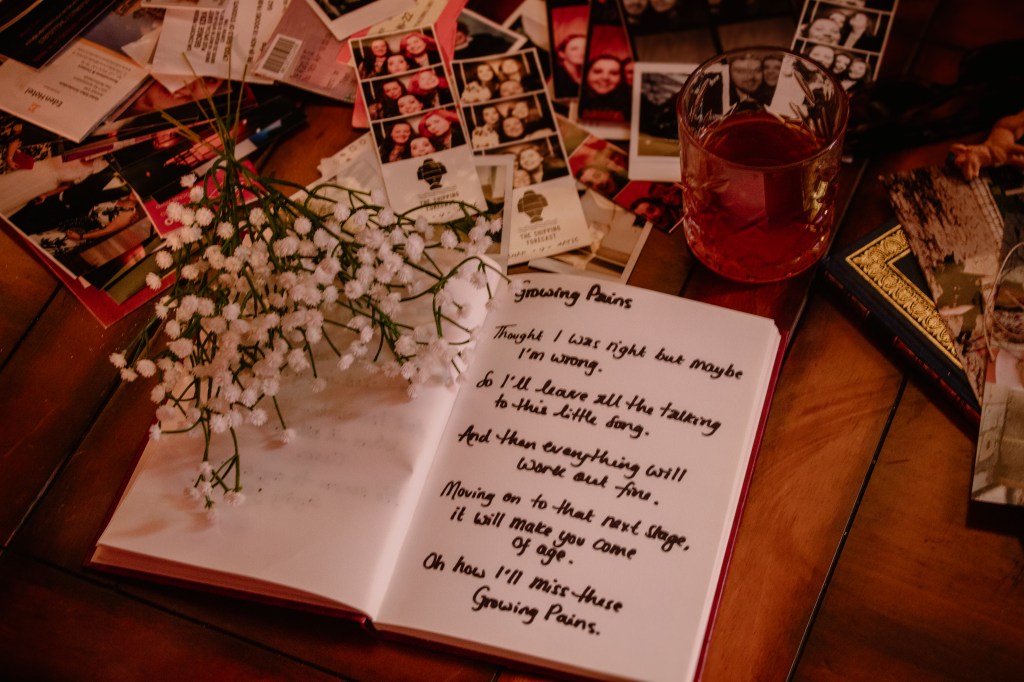 Eden Hotel
THE SHIPPING
FORECAST
THE SHIPPING
FORECAST
Growing Pains
Thought I was right but maybe
I'm wrong.
So I'll leave all the talking
to this little song.
And then everything will
work out fine.
Moving on to that next stage,
it will make you come
of age.
Oh how I'll miss these
Growing Pains.